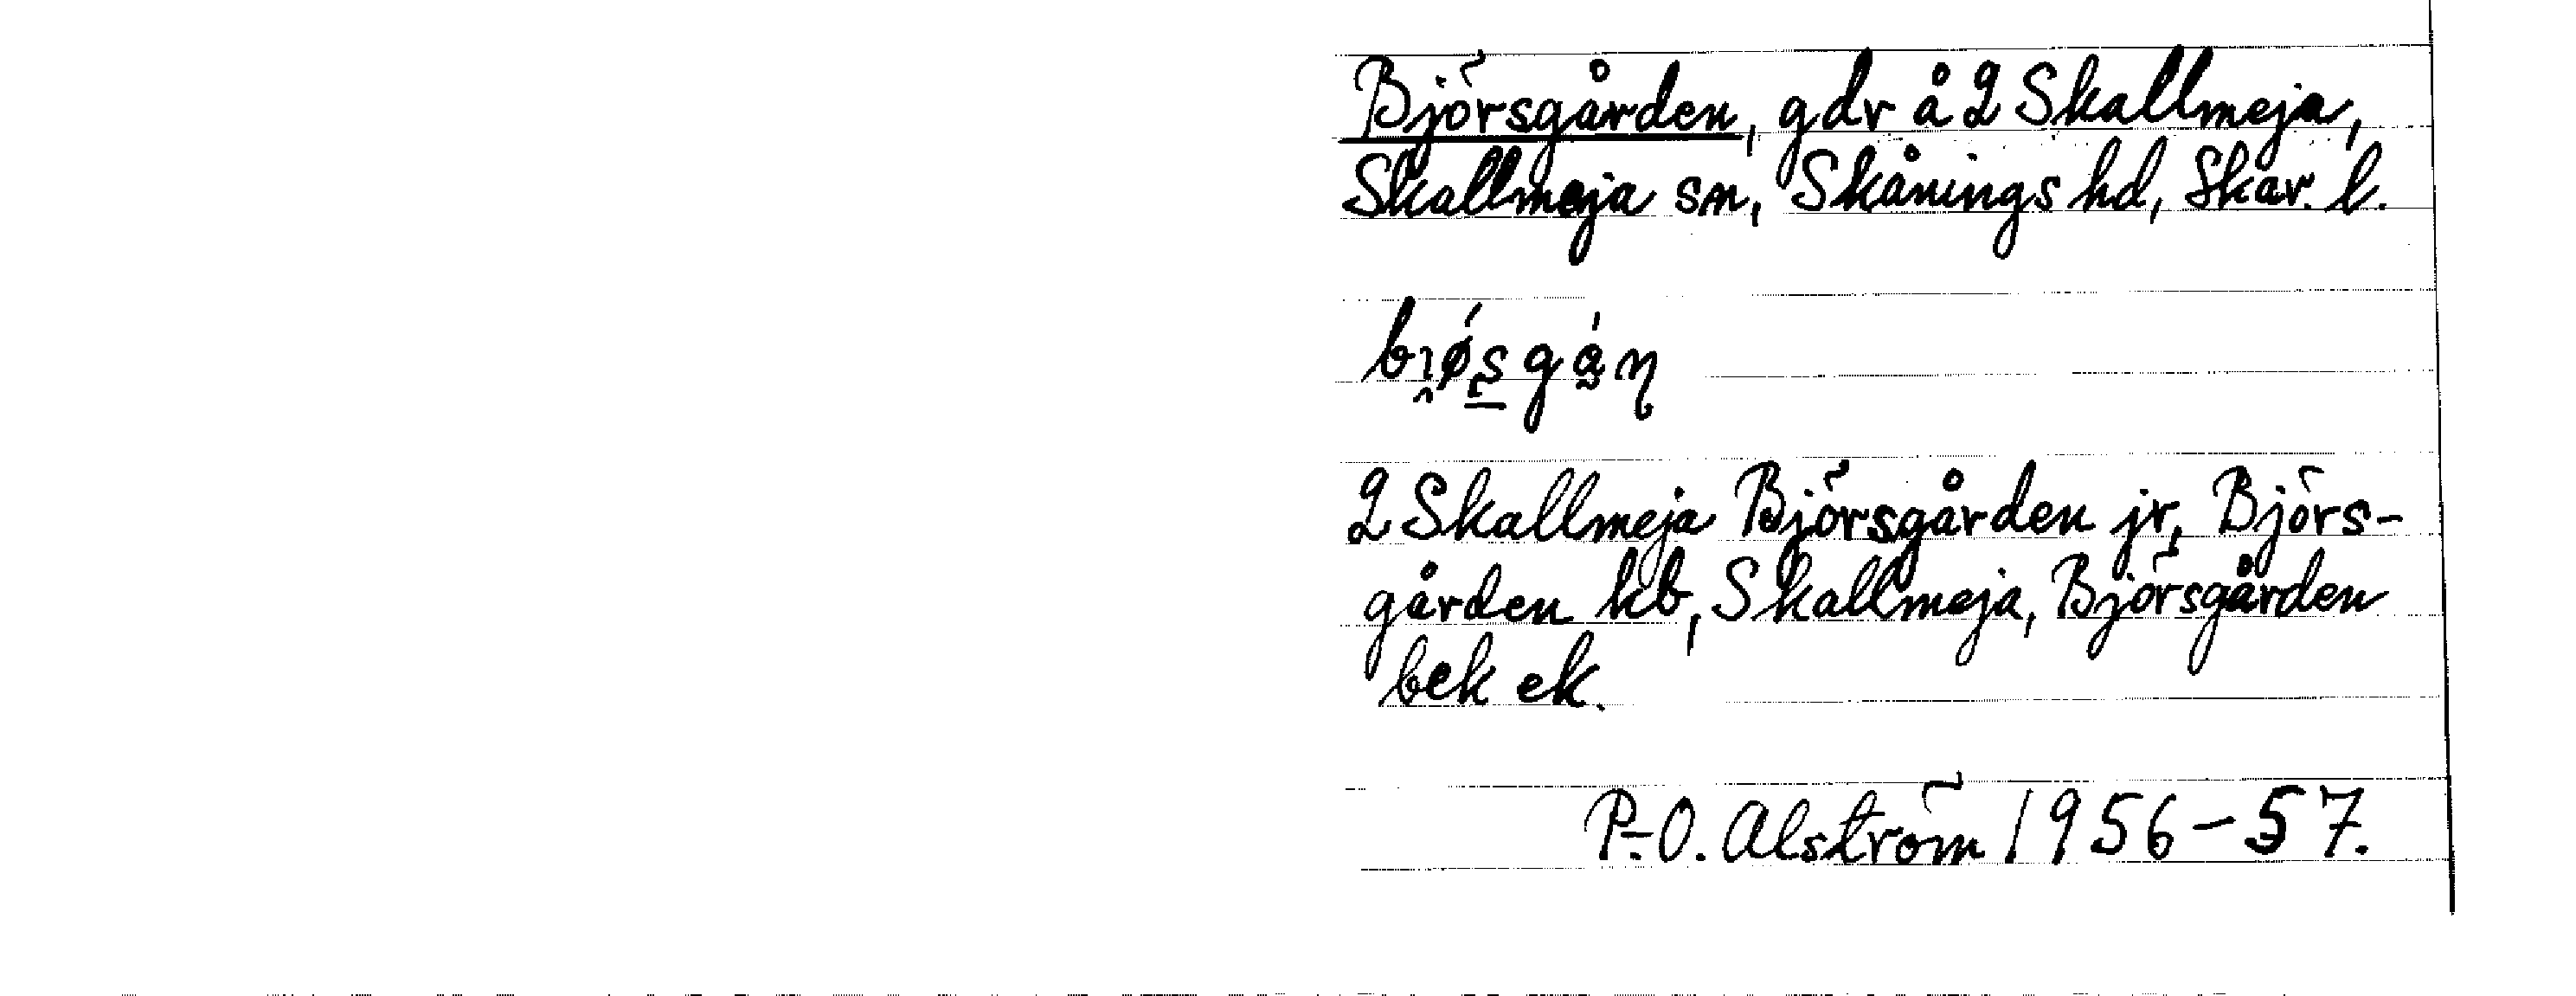 Björsgården, gdr å 2 Skallmeja,
Skallmeja sn, Skånings hd, Skar. l.
bı̯ǿs̠gán
2 Skallmeja Björsgården jr, Björs-
gården kb, Skallmeja, Björsgården
bek ek.
P.-O. Alström 1956-57.